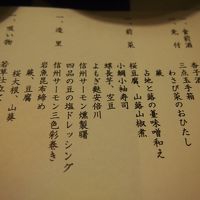 一、食前酒
杏子酒
一、先付
三点玉手箱
わさび菜のおひたし
占地と蕗の薹味噌和え
蕨、豆腐
一、前菜
桜豆腐、山蕗山椒煮
小鯛小袖寿司
螺長芋、空豆
よもぎ麩安倍川
信州サーモン燻製膾
四品の豆の塩ドレッシング
一、造里
信州サーモン三色彩巻き
岩魚昆布締め
蕨、豆腐
桜大根、山葵
一、吸い物
若草仕立て